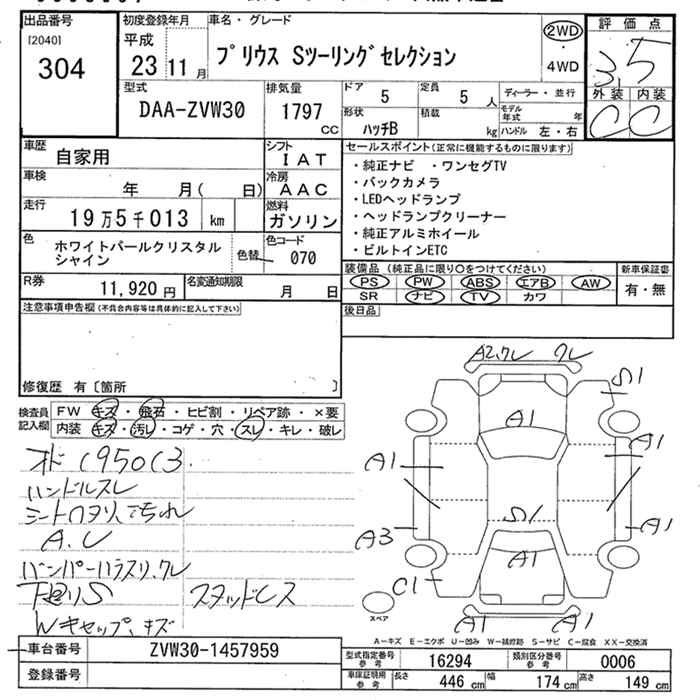 出品番号 初度登録年月 車名・グレード 評価点
[2040]
304
平成
23 11 月
プリウス Sツーリングセレクション
2WD
・
4WD
3.5
外装 内装
C C
型式
DAA-ZVW30
排気量
1797
CC
ドア 5 定員 5 人 ディーラー・並行
形状 ハッチB 積載 kg
モデル年式 年
ハンドル 左・右
車歴
自家用
シフト
IAT
セールスポイント(正常に機能するものに限ります)
・純正ナビ ・ワンセグTV
・バックカメラ
・LEDヘッドランプ
・ヘッドランプクリーナー
・純正アルミホイール
・ビルトインETC
車検
年 月( 日)
冷房
AAC
走行
19万5千013 km
燃料
ガソリン
色
ホワイトパールクリスタル
シャイン
色替
色コード
070
R券
11,920 円
名変通知期限
月 日
装備品(純正品に限り○をつけてください) 新車保証書
PS PW ABS エアB AW 有・無
SR ナビ TV カワ
後日品
注意事項申告欄(不具合内容等は具体的に記入して下さい)
修復歴 有〔箇所 〕
検査員
記入欄
FW キズ・飛石・ヒビ割・リペア跡・×要
内装 キズ・汚レ・コゲ・穴・スレ・キレ・破レ
ハンドルスレ
下廻りS スタッドレス
Wキャップ、キズ
A2,クレ クレ
S1
A1
A1
A1
S1
A3
A1
A1
C1
A1 A1
スペア
A-キズ E-エクボ U-凹み W-補修跡 S-サビ C-腐食 XX-交換済
車台番号 ZVW30-1457959
登録番号
型式指定番号
参考
16294
類別区分番号
参考
0006
車庫証明用
参考
長さ 446 cm 幅 174 cm 高さ 149 cm